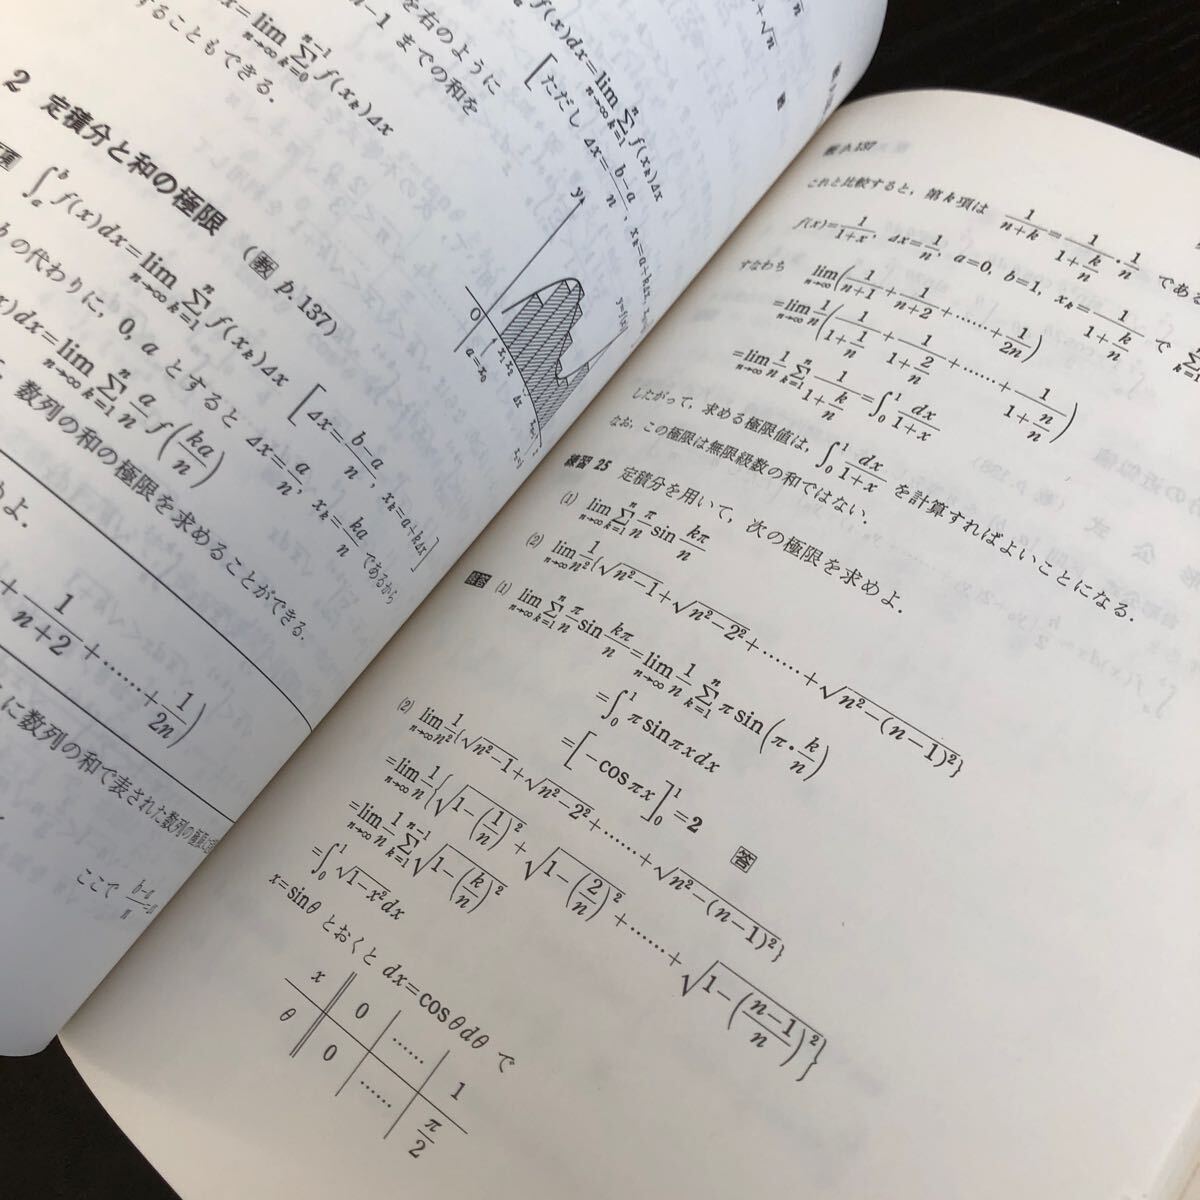 を右のように
n-1 までの和を
することもできる.
∫f(x)dx=lim_{n→∞}Σ_{k=1}^{n}f(x_k)Δx
[ただし Δx=\frac{b-a}{n}, x_k=a+kΔx,
=lim_{n→∞}Σ_{k=0}^{n-1}f(x_k)Δx
2 定積分と和の極限 (教 p.137)
∫_a^b f(x)dx=lim_{n→∞}Σ_{k=1}^{n}f(x_k)Δx [Δx=\frac{b-a}{n}, x_k=a+kΔx]
bの代わりに, 0, a とすると Δx=\frac{a}{n}, x_k=\frac{ka}{n} であるから
dx=lim_{n→∞}Σ_{k=1}^{n}\frac{a}{n}f(\frac{ka}{n})
数列の和の極限を求めることができる.
めよ.
+\frac{1}{n+2}+……+\frac{1}{2n})
に数列の和で表された数列の極限
ここで \frac{b-a}{n}
y
O
教 p.137
これと比較すると, 第k項は \frac{1}{n+k}=\frac{1}{1+\frac{k}{n}}・\frac{1}{n} である
f(x)=\frac{1}{1+x}, Δx=\frac{1}{n}, a=0, b=1, x_k=\frac{1}{1+\frac{k}{n}} で
すなわち lim_{n→∞}(\frac{1}{n+1}+\frac{1}{n+2}+……+\frac{1}{2n})
=lim_{n→∞}\frac{1}{n}(\frac{1}{1+\frac{1}{n}}+\frac{1}{1+\frac{2}{n}}+……+\frac{1}{1+\frac{n}{n}})
=lim_{n→∞}\frac{1}{n}Σ_{k=1}^{n}\frac{1}{1+\frac{k}{n}}=∫_0^1\frac{dx}{1+x}
したがって, 求める極限値は, ∫_0^1\frac{dx}{1+x} を計算すればよいことになる.
なお, この極限は無限級数の和ではない.
練習 25 定積分を用いて, 次の極限を求めよ.
(1) lim_{n→∞}Σ_{k=1}^{n}\frac{π}{n}sin\frac{kπ}{n}
(2) lim_{n→∞}\frac{1}{n²}{√(n²-1)+√(n²-2²)+……+√(n²-(n-1)²)}
解答 (1) lim_{n→∞}Σ_{k=1}^{n}\frac{π}{n}sin\frac{kπ}{n}=lim_{n→∞}\frac{1}{n}Σ_{k=1}^{n}π sin(π・\frac{k}{n})
=∫_0^1 π sin πx dx
=[-cos πx]_0^1=2 答
(2) lim_{n→∞}\frac{1}{n²}{√(n²-1)+√(n²-2²)+……+√(n²-(n-1)²)}
=lim_{n→∞}\frac{1}{n}{√(1-(\frac{1}{n})²)+√(1-(\frac{2}{n})²)+……+√(1-(\frac{n-1}{n})²)}
=lim_{n→∞}\frac{1}{n}Σ_{k=1}^{n-1}√(1-(\frac{k}{n})²)
=∫_0^1 √(1-x²)dx
x=sinθ とおくと dx=cosθdθ で
x 0 …… 1
θ 0 …… \frac{π}{2}